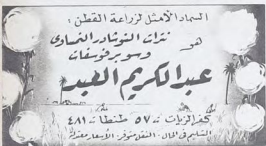 السماد الأمثل لزراعة القطن :
هو
نترات النوشادر النمساوى
وسوبر فوسفات
عبد الكريم العبد
كفر الزيات ت ٥٧ طنطا ت ٤٨١
التسليم فى الحال . النقل متوفر . الأسعار معتدلة